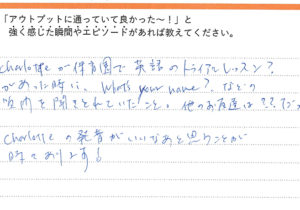 「アウトプットに通っていて良かった～！」と
強く感じた瞬間やエピソードがあれば教えてください。
Charlotteが保育園で英語のトライアルレッスン?
があった時に、What's your name? などの
質問を聞きとれていたこと。他のお友達は??だっ
Charlotteの発音がいいなあと思うことが
時々あります!